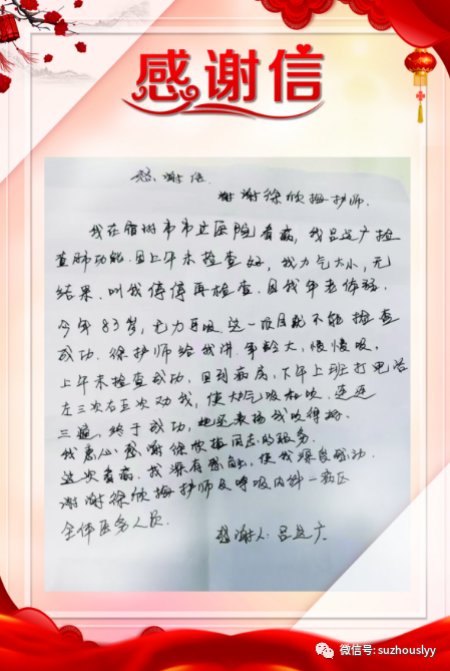 感谢信
感谢信
谢谢徐欣梅护师.
我在宿州市市立医院看病,我吕廷广检
查肺功能.因上午未检查好,我力气太小,无
结果.叫我停停再检查.因我年老体弱,
今年83岁,无力再吸这一项目就不能检查
成功.徐护师给我讲.年龄大,慢慢吸,
上午未检查成功,回到病房,下午上班打电话
左三次右五次动我,使大气吸和吹.连连
三遍,终于成功,她还表扬我吹得好.
我衷心感谢徐欣梅同志的服务.
这次看病.我深有感触,使我深受感动.
谢谢徐欣梅护师及呼吸内科一病区
全体医务人员.
感谢人:吕廷广
微信号: suzhouslyy